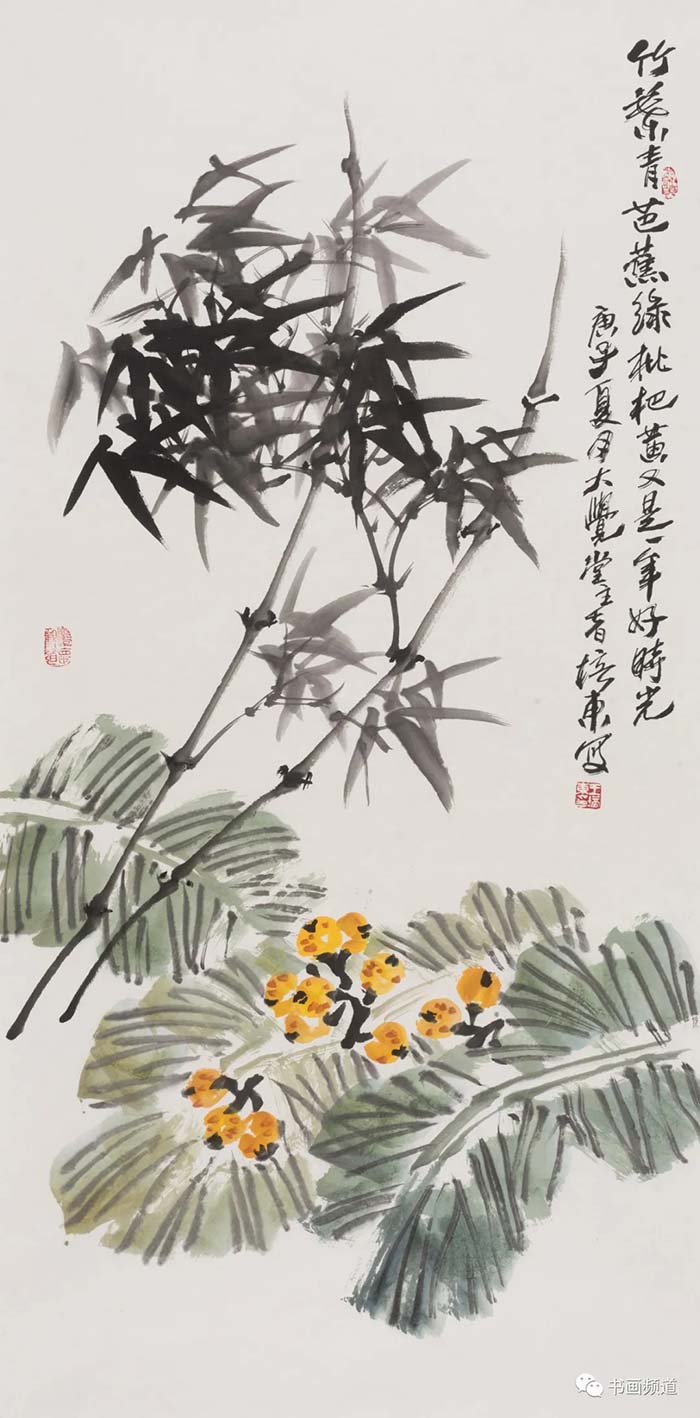 竹叶青芭蕉绿枇杷黄又是一年好時光
庚子夏月大覺堂主者培東写
书画频道